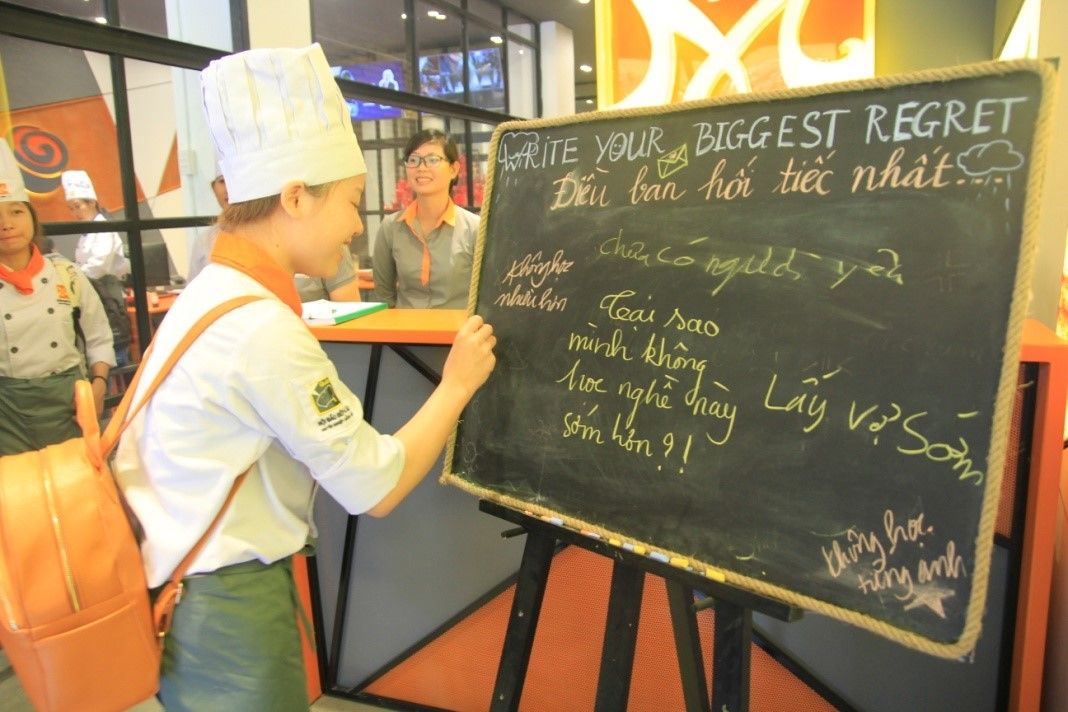 WRITE YOUR BIGGEST REGRET
Điều bạn hối tiếc nhất...
Chưa có người yêu
Không học
nhiều hơn
Tại sao
mình không
học nghề này
sớm hơn?!
Lấy vợ sớm
Không học
tiếng anh